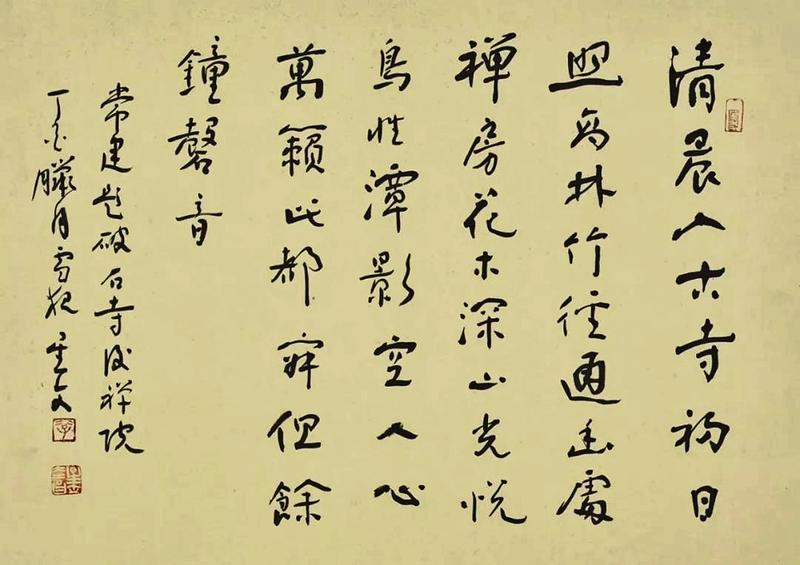 清晨入古寺初日
照高林竹徑通幽處
禪房花木深山光悅
鳥性潭影空人心
萬籟此都寂但餘
鐘磬音
常建題破石寺後禪院
丁酉臘月雪夜